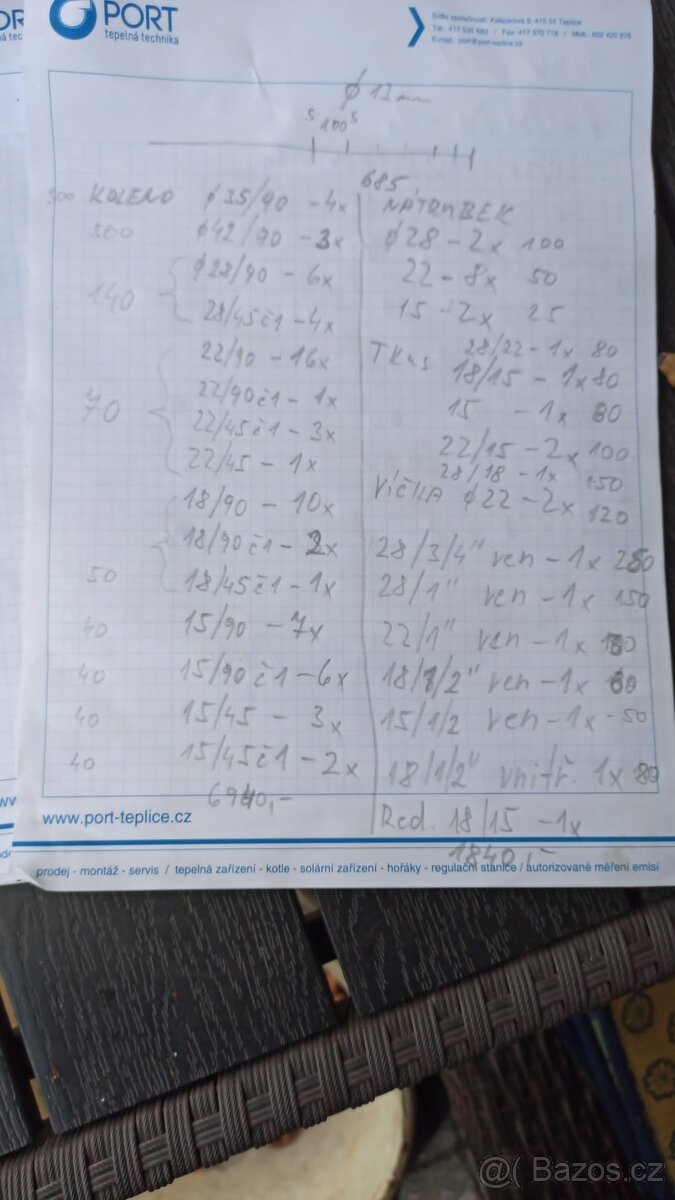 PORT
tepelná technika
Sídlo společnosti: Kašparova 8, 415 01 Teplice
E-mail: port@port-teplice.cz
ϕ 13 mm
5 100 5
685
KOLENO ϕ35/90 - 4x
300 ϕ42/90 - 3x
ϕ28/90 - 6x
140
28/45 č1 - 4x
22/90 - 16x
22/90 č1 - 1x
70
22/45 č1 - 3x
22/45 - 1x
18/90 - 10x
18/90 č1 - 2x
50 18/45 č1 - 1x
40 15/90 - 7x
40 15/90 č1 - 6x
40 15/45 - 3x
40 15/45 č1 - 2x
6940,-
NÁTRUBEK
ϕ28 - 2x 100
22 - 8x 50
15 - 2x 25
28/22 - 1x 80
18/15 - 1x 80
15 - 1x 80
22/15 - 2x 100
28/18 - 1x 150
VÍČKA ϕ22 - 2x 120
28/3/4" ven - 1x 250
28/1" ven - 1x 150
22/1" ven - 1x
18/1/2" ven - 1x
15/1/2 ven - 1x - 50
18/1/2" vnitř. 1x 80
Red. 18/15 - 1x
1840,-
www.port-teplice.cz
prodej - montáž - servis / tepelná zařízení - kotle - solární zařízení - hořáky - regulační stanice / autorizované měření emisí
@ Bazos.cz